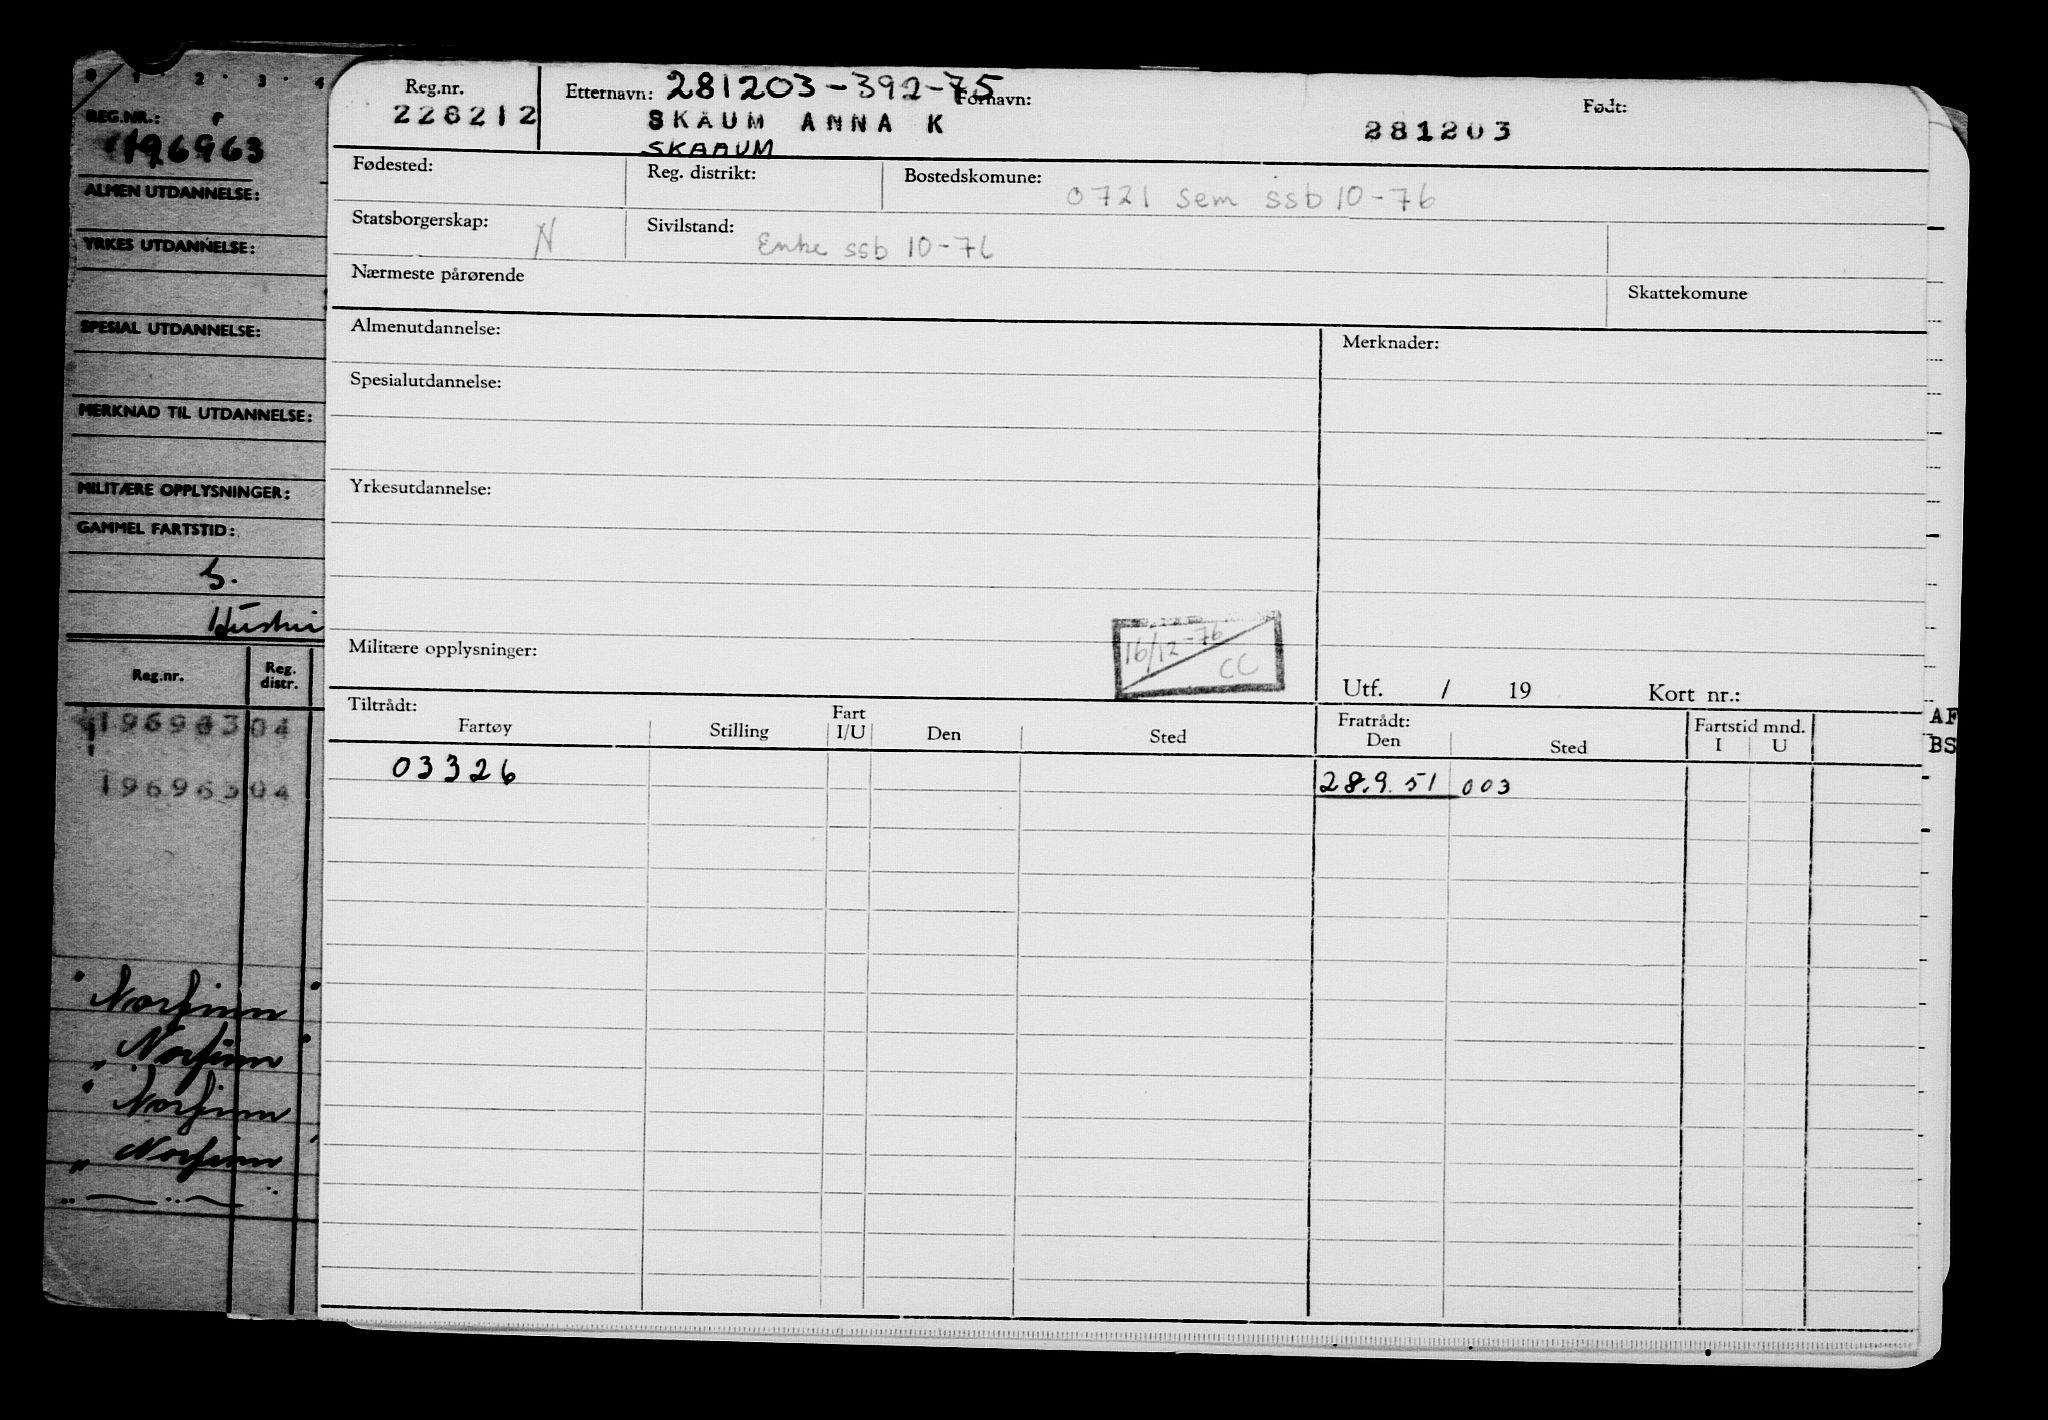 0 1 2 3 4
REG.NR.:
196963
ALMEN UTDANNELSE:
YRKES UTDANNELSE:
SPESIAL UTDANNELSE:
MERKNAD TIL UTDANNELSE:
MILITÆRE OPPLYSNINGER:
GAMMEL FARTSTID:
Reg.nr. Reg. distr.
196963 04
196963 04
Norfinn
Norfinn
Norfinn
Norfinn
Reg.nr. Etternavn: 281203-392-75 Fornavn: Født:
228212 SKAUM ANNA K 281203
SKAAUM
Fødested: Reg. distrikt: Bostedskomune: 0721 Sem ssb 10-76
Statsborgerskap: N Sivilstand: Enke ssb 10-76
Nærmeste pårørende Skattekomune
Almenutdannelse: Merknader:
Spesialutdannelse:
Yrkesutdannelse:
16/12-76
CC
Militære opplysninger:
Utf. / 19 Kort nr.:
Tiltrådt: Fart Fratrådt: Fartstid mnd.
Fartøy Stilling I/U Den Sted Den Sted I U
03326 28.9.51 003
AF
BS